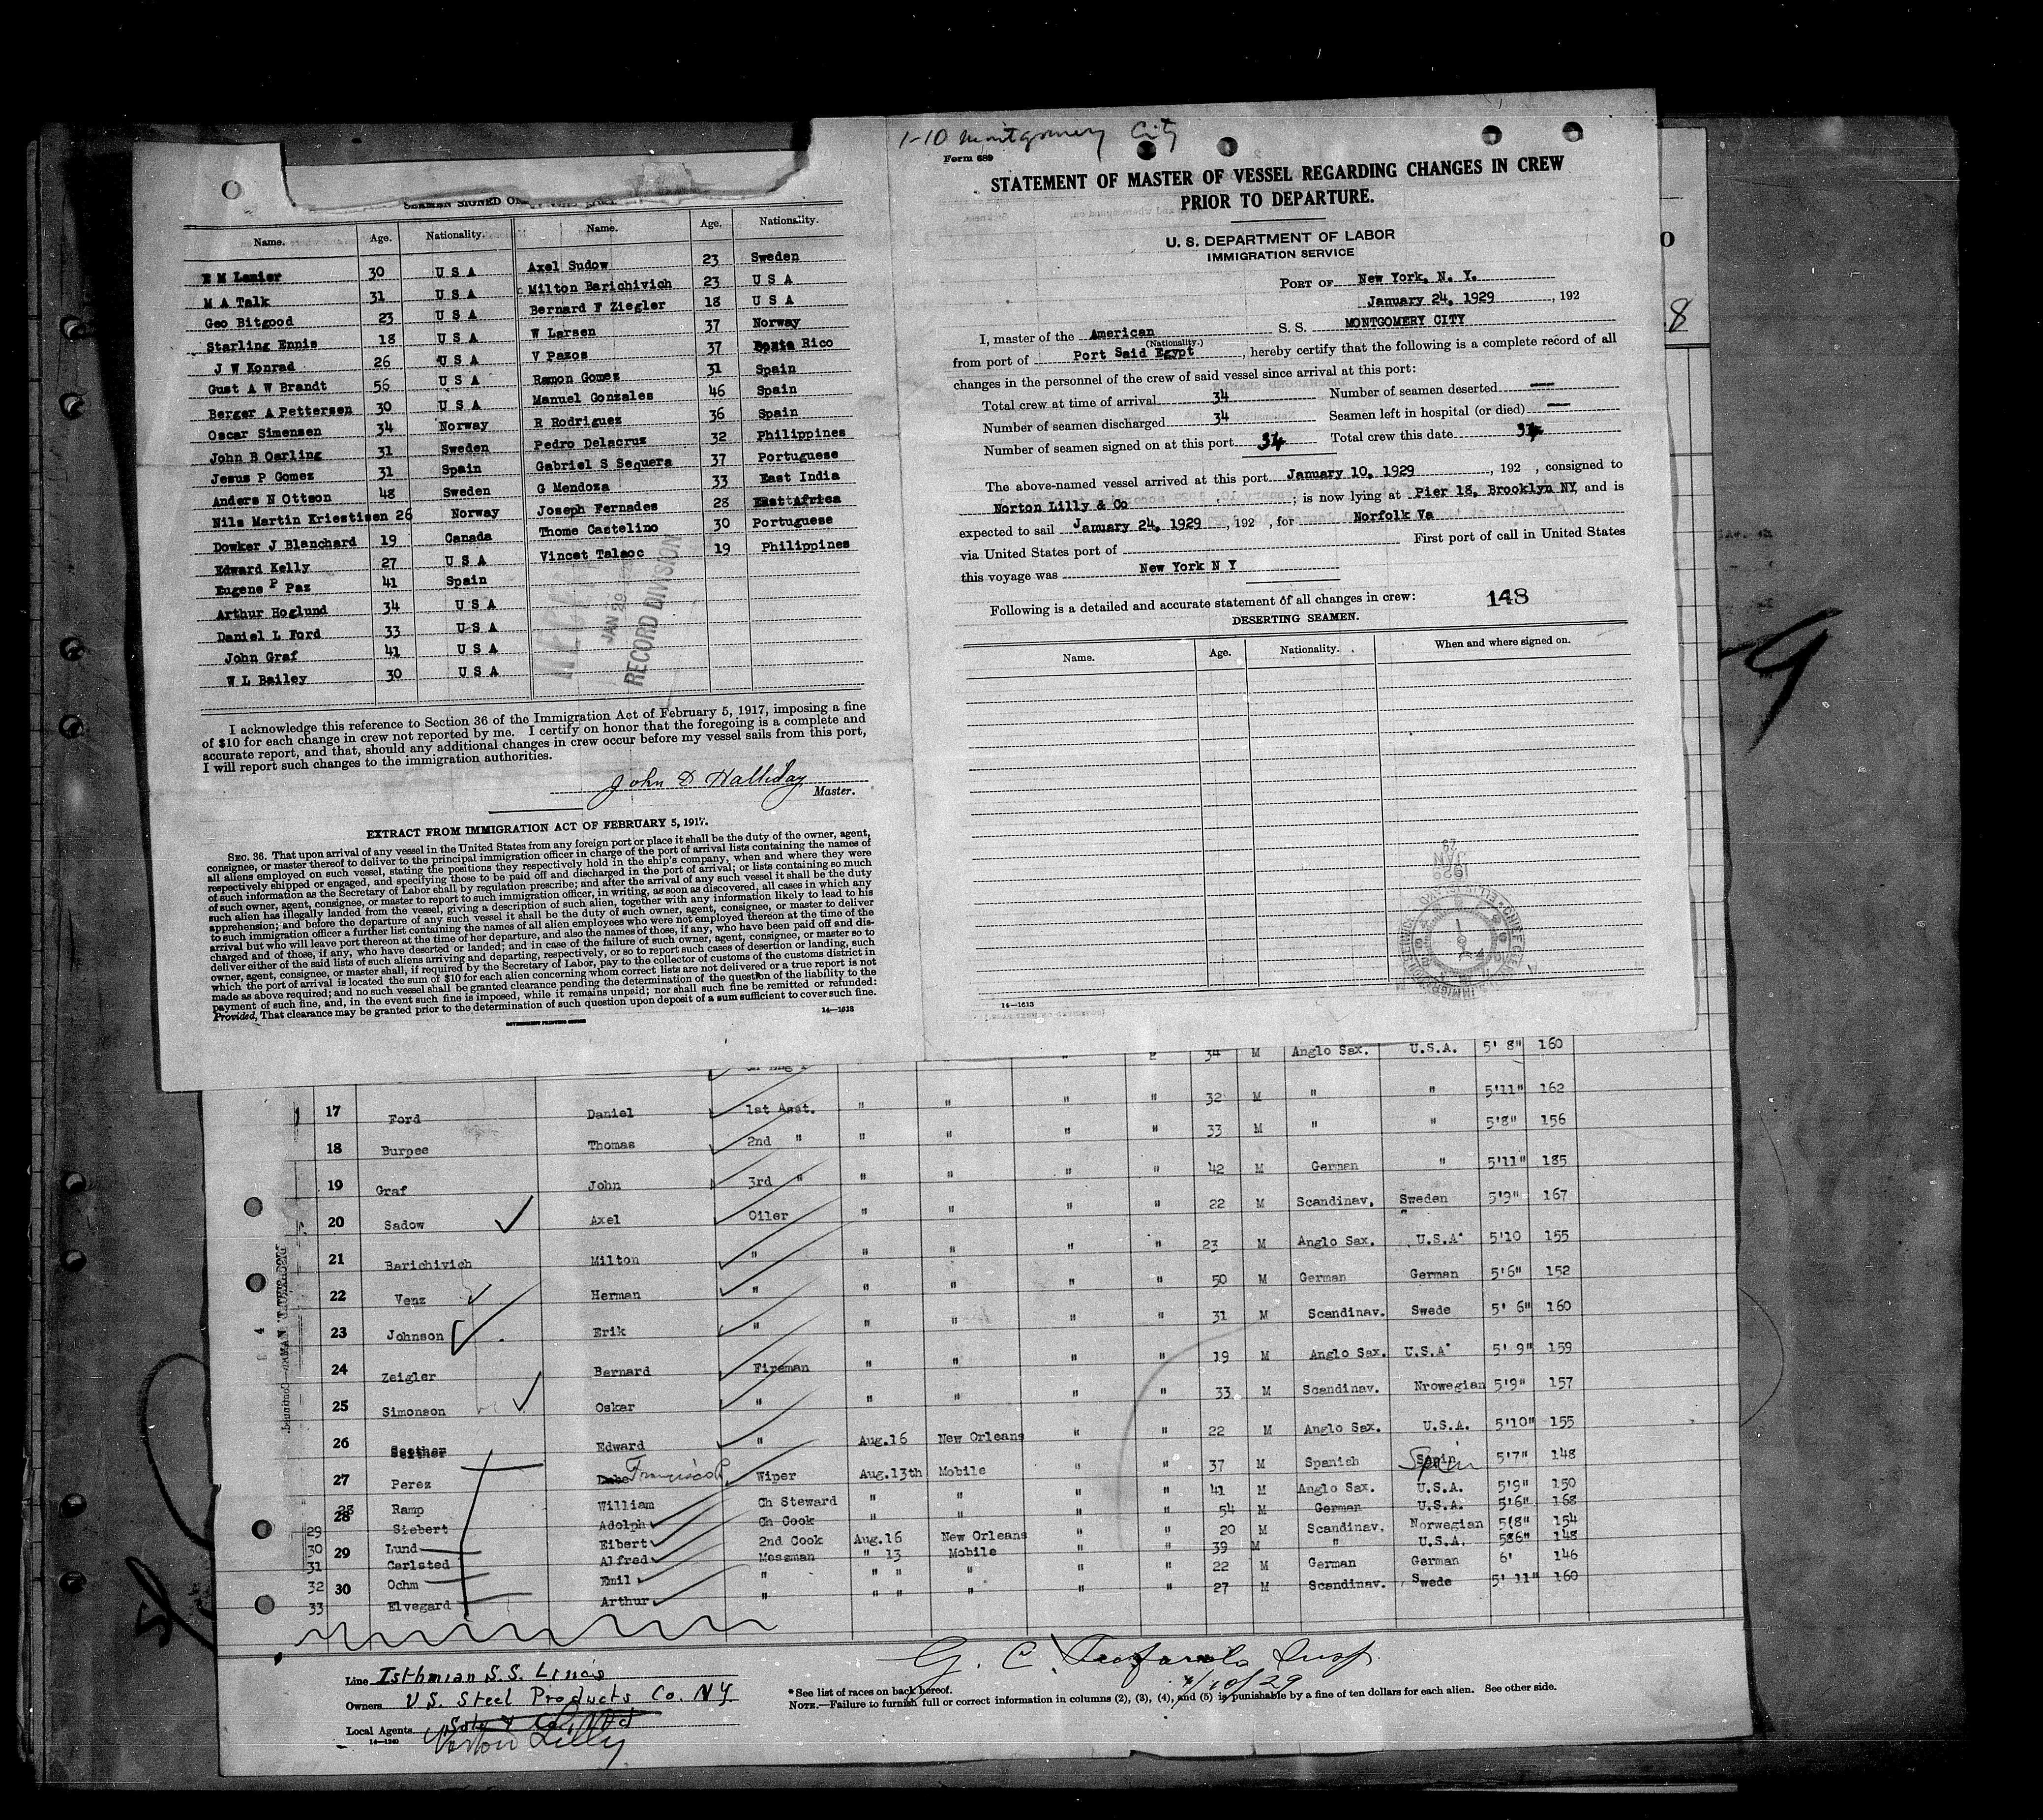 1-10 Montgomery City
Form 689
STATEMENT OF MASTER OF VESSEL REGARDING CHANGES IN CREW
PRIOR TO DEPARTURE.
U. S. DEPARTMENT OF LABOR
IMMIGRATION SERVICE
PORT OF New York, N. Y.
January 24, 1929, 192
I, master of the American S. S. MONTGOMERY CITY
(Nationality.)
from port of Port Said Egypt, hereby certify that the following is a complete record of all
changes in the personnel of the crew of said vessel since arrival at this port:
Total crew at time of arrival 34 Number of seamen deserted —
Number of seamen discharged 34 Seamen left in hospital (or died) —
Number of seamen signed on at this port 34 Total crew this date 34
The above-named vessel arrived at this port January 10, 1929, 192 , consigned to
Norton Lilly & Co ; is now lying at Pier 18, Brooklyn NY, and is
expected to sail January 24, 1929, 192 , for Norfolk Va
via United States port of First port of call in United States
this voyage was New York N Y
Following is a detailed and accurate statement of all changes in crew: 148
DESERTING SEAMEN.
Name. Age. Nationality. When and where signed on.
14—1613
SEAMEN SIGNED ON
Name. Age. Nationality. Name. Age. Nationality.
E M Lanier 30 U S A Axel Sudow 23 Sweden
M A Talk 31 U S A Milton Barichivich 23 U S A
Geo Bitgood 23 U S A Bernard F Ziegler 18 U S A
Starling Ennis 18 U S A W Larsen 37 Norway
J W Konrad 26 U S A V Pazos 37 Porto Rico
Gust A W Brandt 56 U S A Ramon Gomez 31 Spain
Berger A Pettersen 30 U S A Manuel Gonzales 46 Spain
Oscar Simensen 34 Norway R Rodriguez 36 Spain
John B Carling 31 Sweden Pedro Delacruz 32 Philippines
Jesus P Gomez 31 Spain Gabriel S Sequera 37 Portuguese
Anders N Ottson 48 Sweden G Mendoza 33 East India
Nils Martin Kriestisen 26 Norway Joseph Fernades 28 East Africa
Dowker J Blanchard 19 Canada Thome Castelino 30 Portuguese
Edward Kelly 27 U S A Vincet Talaoc 19 Philippines
Eugene P Paz 41 Spain
Arthur Hoglund 34 U S A
Daniel L Ford 33 U S A
John Graf 41 U S A
W L Bailey 30 U S A
JAN 29
RECORD DIVISION
I acknowledge this reference to Section 36 of the Immigration Act of February 5, 1917, imposing a fine
of $10 for each change in crew not reported by me. I certify on honor that the foregoing is a complete and
accurate report, and that, should any additional changes in crew occur before my vessel sails from this port,
I will report such changes to the immigration authorities.
John D Halliday
Master.
EXTRACT FROM IMMIGRATION ACT OF FEBRUARY 5, 1917.
SEC. 36. That upon arrival of any vessel in the United States from any foreign port or place it shall be the duty of the owner, agent,
consignee, or master thereof to deliver to the principal immigration officer in charge of the port of arrival lists containing the names of
all aliens employed on such vessel, stating the positions they respectively hold in the ship's company, when and where they were
respectively shipped or engaged, and specifying those to be paid off and discharged in the port of arrival; or lists containing so much
of such information as the Secretary of Labor shall by regulation prescribe; and after the arrival of any such vessel it shall be the duty
of such owner, agent, consignee, or master to report to such immigration officer, in writing, as soon as discovered, all cases in which any
such alien has illegally landed from the vessel, giving a description of such alien, together with any information likely to lead to his
apprehension; and before the departure of any such vessel it shall be the duty of such owner, agent, consignee, or master to deliver
to such immigration officer a further list containing the names of all alien employees who were not employed thereon at the time of the
arrival but who will leave port thereon at the time of her departure, and also the names of those, if any, who have been paid off and dis-
charged and of those, if any, who have deserted or landed; and in case of the failure of such owner, agent, consignee, or master so to
deliver either of the said lists of such aliens arriving and departing, respectively, or so to report such cases of desertion or landing, such
owner, agent, consignee, or master shall, if required by the Secretary of Labor, pay to the collector of customs of the customs district in
which the port of arrival is located the sum of $10 for each alien concerning whom correct lists are not delivered or a true report is not
made as above required; and no such vessel shall be granted clearance pending the determination of the question of the liability to the
payment of such fine, and, in the event such fine is imposed, while it remains unpaid; nor shall such fine be remitted or refunded:
Provided, That clearance may be granted prior to the determination of such question upon deposit of a sum sufficient to cover such fine.
GOVERNMENT PRINTING OFFICE 14—1613
34 M Anglo Sax. U.S.A. 5' 8" 160
17 Ford Daniel 1st Asst. " " " " 32 M " " 5'11" 162
18 Burpee Thomas 2nd " " " " " 33 M " " 5'8" 156
19 Graf John 3rd " " " " " 42 M German " 5'11" 185
20 Sadow Axel Oiler " " " " 22 M Scandinav. Sweden 5'9" 167
21 Barichivich Milton " " " " " 23 M Anglo Sax. U.S.A. 5'10 155
22 Venz Herman " " " " " 50 M German German 5'6" 152
23 Johnson Erik " " " " " 31 M Scandinav. Swede 5' 6" 160
24 Zeigler Bernard Fireman " " " " 19 M Anglo Sax. U.S.A. 5' 9" 159
25 Simonson Oskar " " " " " 33 M Scandinav. Nrowegian 5'9" 157
26 Edward " Aug.16 New Orleans " " 22 M Anglo Sax. U.S.A. 5'10" 155
27 Perez Francisco P. Wiper Aug.13th Mobile " " 37 M Spanish Spain 5'7" 148
28 Ramp William Ch Steward " " " " 41 M Anglo Sax. U.S.A. 5'9" 150
29 Siebert Adolph Ch Cook " " " " 54 M German U.S.A. 5'6" 168
30 29 Lund Eibert 2nd Cook Aug.16 New Orleans " " 20 M Scandinav. Norwegian 5'8" 154
31 Carlsted Alfred Messman " 13 Mobile " " 39 M " U.S.A. 586" 148
32 30 Ochm Emil " " " " " " 22 M German German 6' 146
33 Elvegard Arthur " " " " " " 27 M Scandinav. Swede 5' 11" 160
Line Isthmian S.S. Lines
Owners U.S. Steel Products Co. NY
Local Agents Norton Lilly
14—1240
G. C. Insp.
1/10/29
* See list of races on back hereof.
NOTE.—Failure to furnish full or correct information in columns (2), (3), (4), and (5) is punishable by a fine of ten dollars for each alien. See other side.